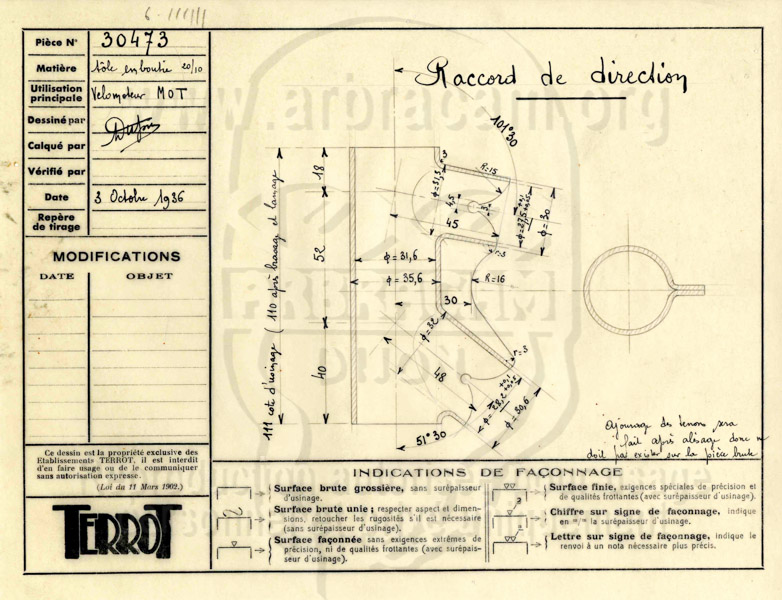 Pièce N° 30473
Matière tôle emboutie 20/10
Utilisation principale Velomoteur MOT
Dessiné par
Calqué par
Vérifié par
Date 3 Octobre 1936
Repère de tirage
MODIFICATIONS
DATE OBJET
Ce dessin est la propriété exclusive des
Etablissements TERROT, il est interdit
d'en faire usage ou de le communiquer
sans autorisation expresse.
(Loi du 11 Mars 1902.)
TERROT
Raccord de direction
www.arbracam.org
ARBRACAM
101°30
18
52
40
111 cote d'usinage ( 110 après brasage et lamage
r=3
R=15
ϕ=31,3
4,5
3
45
ϕ=30
ϕ=31,6
ϕ=35,6
r=3
R=16
30
ϕ=32
1
48
r=3
ϕ=30,6
51°30
Ajourage des tenons sera
fait après alésage donc ne
doit pas exister sur la pièce brute
INDICATIONS DE FAÇONNAGE
Surface brute grossière, sans surépaisseur
d'usinage.
Surface brute unie ; respecter aspect et dimen-
sions, retoucher les rugosités s'il est nécessaire
(sans surépaisseur d'usinage).
Surface façonnée sans exigences extrêmes de
précision, ni de qualités frottantes (avec surépais-
seur d'usinage).
Surface finie, exigences spéciales de précision et
de qualités frottantes (avec surépaisseur d'usinage).
Chiffre sur signe de façonnage, indique
en m/m la surépaisseur d'usinage.
Lettre sur signe de façonnage, indique le
renvoi à un nota nécessaire plus précis.